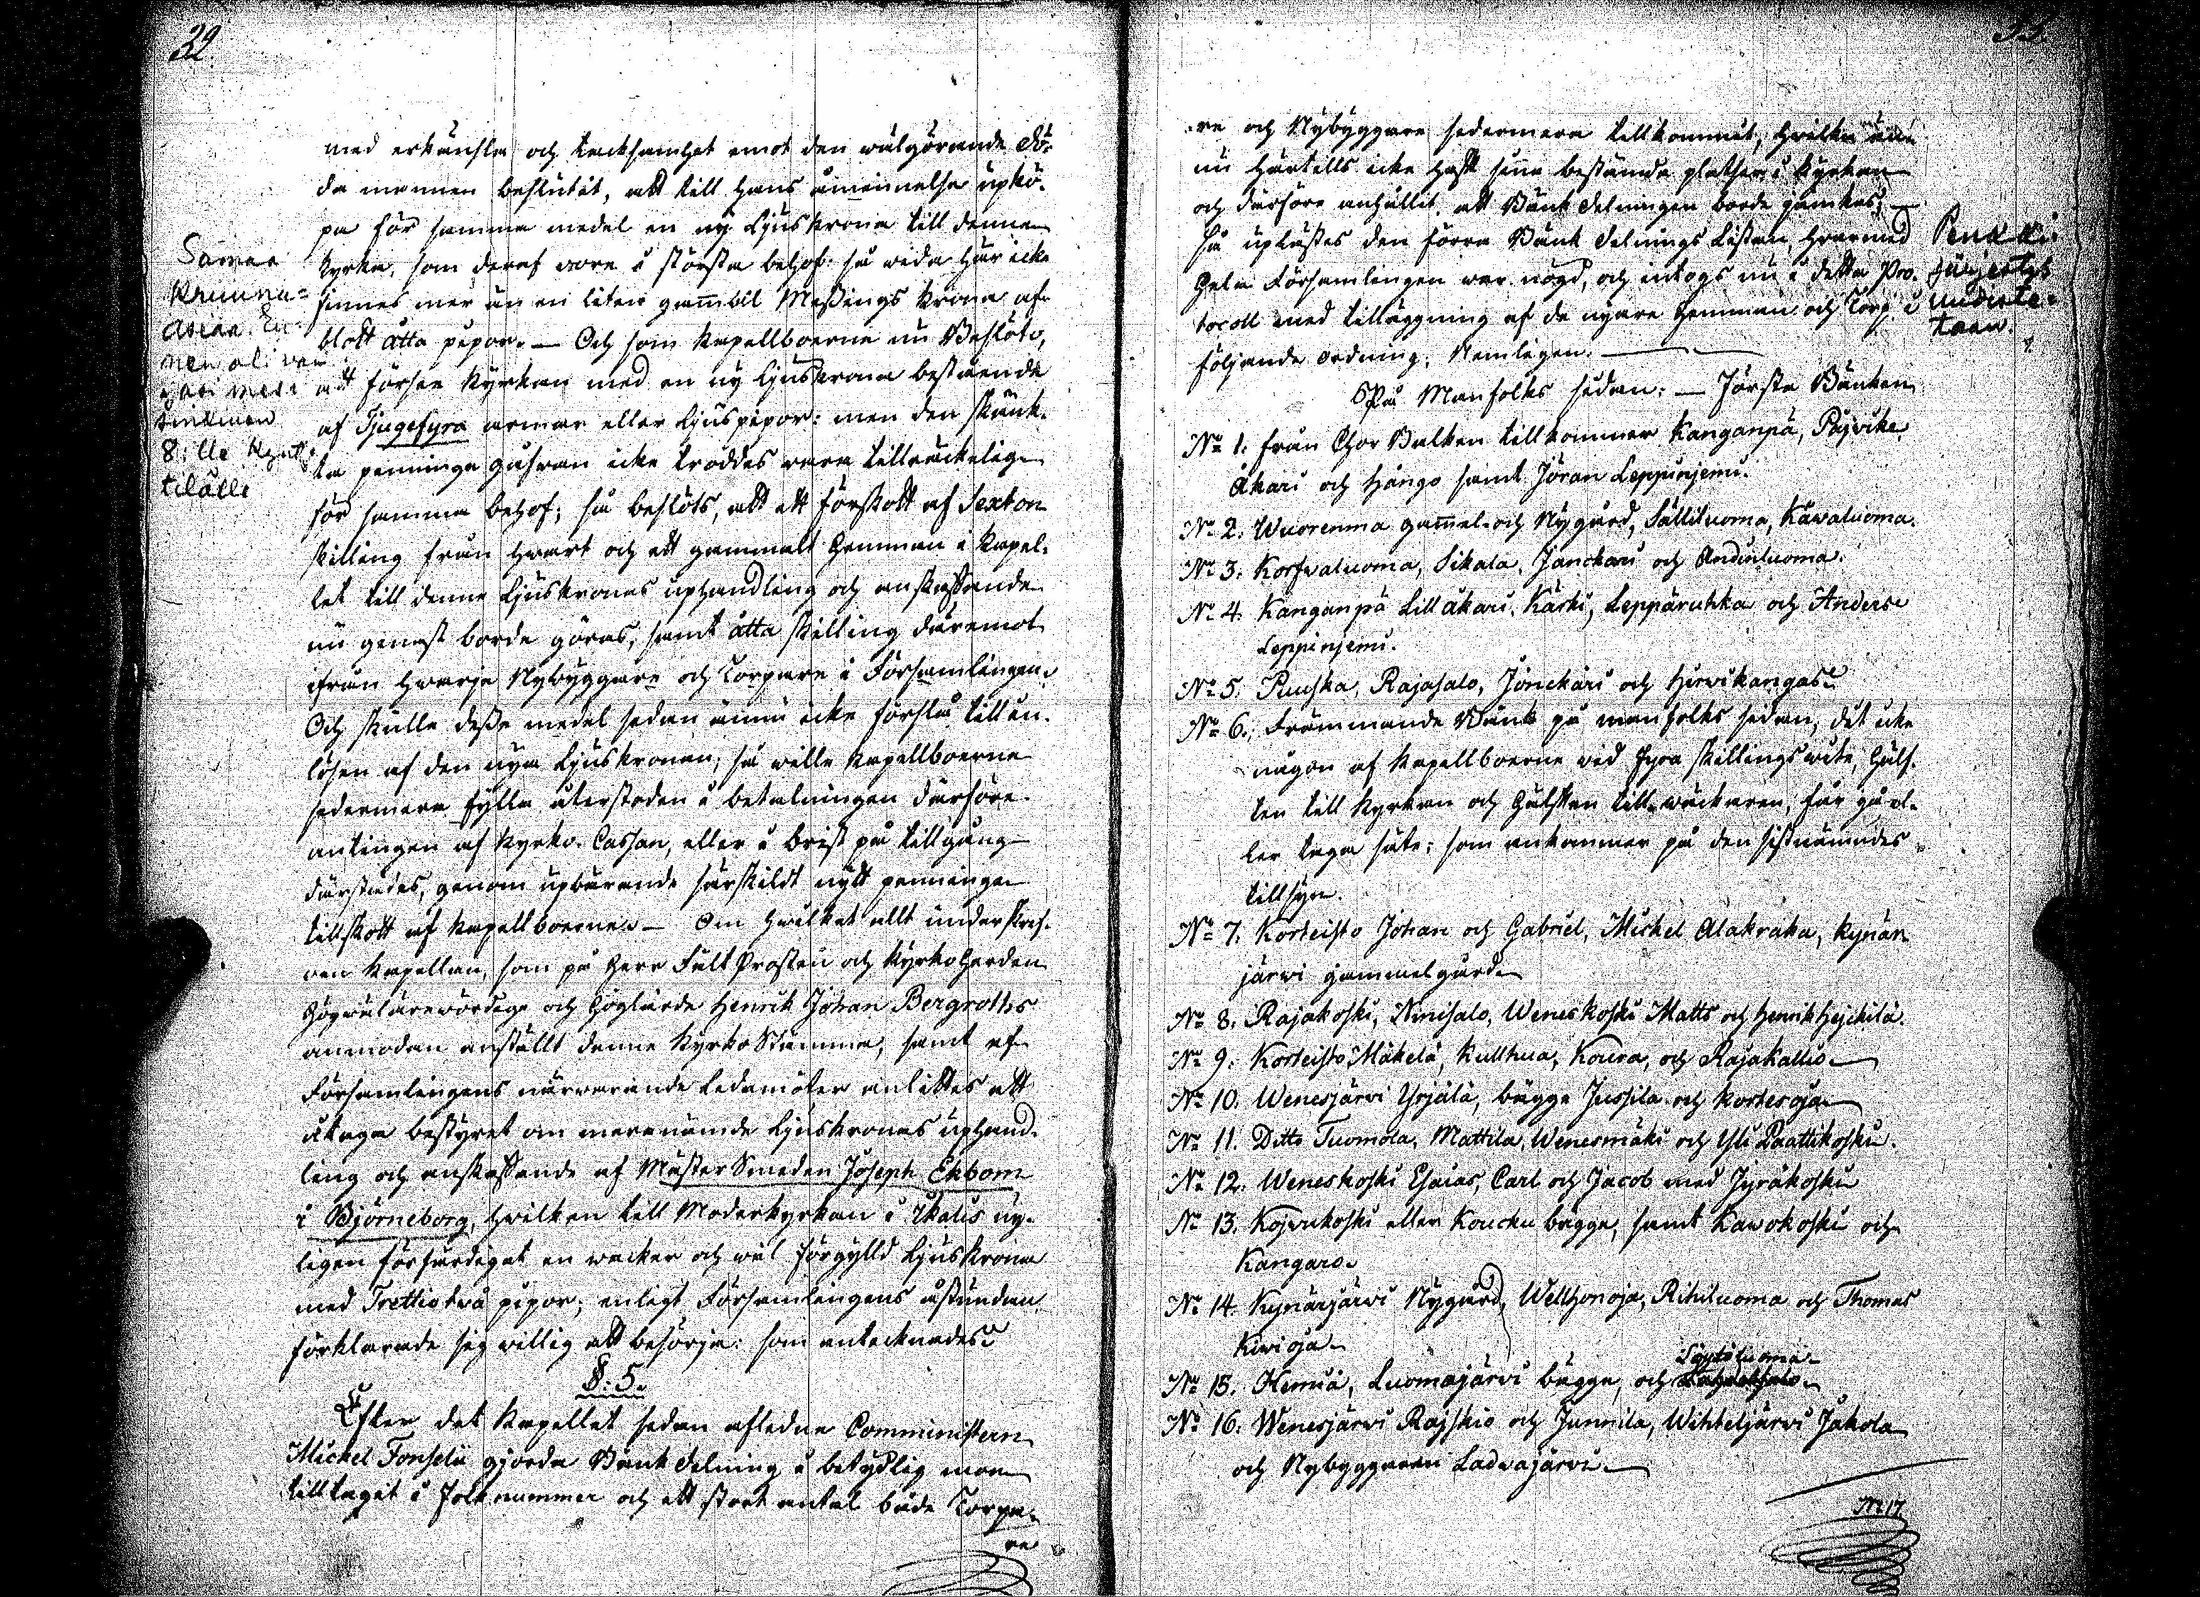 32.
med erkänsla och tacksamhet emot den wälgörande dö-
da mannen beslutit, att till hans åminnelse upkö-
pa för samma medel en ny Ljuskrona till denna
kyrka, som deraf vore i största behof: så wida här icke
finnes mer än en liten gammal Messings krona af
blott åtta pipor. — Och som Kapellboerne nu Beslöto,
att förse kyrkan med en ny Ljuskrona bestående
af Tjugefyra armar eller Ljuspipor: men den skänk-
ta penninge gåfwan icke troddes vara tillräckelig
för samma behof; så beslöts, att ett förskott af Sexton
skilling från hwart och ett gammalt Hemman i Kapel-
let till denne Ljuskronas uphandling och anskaffande
nu genast borde göras, samt åtta skilling däremot
ifrån hwarje Nybyggare och Torpare i Församlingen.
Och skulle desse medel sedan ännu icke förslå till in-
lösen af den nya Ljuskronan, så wille Kapellboerne
sedermera fylla återstoden i betalningen därföre
antingen af Kyrko-Cassan, eller i brist på tillgång
därstädes, genom upbärande särskildt nytt penninge
tillskott af Kapellboerne. — Om hwilket allt underskref-
ven Kapellan, som på Herr Fält Prosten och Kyrko Herden
Högwälärewördige och Höglärde Henrik Johan Bergroths
anmodan anställt denne Kyrko Stämma, samt af
Församlingens närwarande Ledamöter anlittes att
åtaga bestyret om merenämde Ljuskronas uphand-
ling och anskaffande af Mäster Smeden Joseph Ekbom
i Björneborg, hwilken till Moderkyrkan i Ikalis ny-
ligen förfärdigat en wacker och wäl förgylld Ljuskrona
med Trettiotwå pipor; enligt Församlingens åstundan
förklarade sig willig att besörja: som antecknades.
§. 5.
Efter det Kapellet sedan afledne Comministern
Michel Fonselii gjorda Bänkdelning i betydlig mon
tilltagit i folknummer och ett stort antal både Torpa-
re
Samaa
Kruunu=
asiaa. En-
nen oli van
8:lla kynt-
tilällä
33.
re och Nybyggare sedermera tillkommit, hwilka
nu härtills icke haft sina bestämda platser i kyrkan
och därföre anhållit, att Bänkdelningen borde jämkas; —
så uplästes den förra Bänkdelnings Listan, hvarmed
Hela Församlingen war nögd, och intogs nu i detta Pro-
tocoll med tilläggning af de nyare Hemman och Torp i
följande ordning, Nemligen. —
Penkki-
järjestys
uudiste-
taan.
På Manfolks sidan: — Första Bänken
No 1. från Chor Balken tillkommer Kanganpä, Päjvike,
Äkäri och Hängo samt Jöran Leppinjemi.
No 2. Wuorenma gammel- och Nygård, Sälliluoma, Käwaluoma.
No 3. Korfwaluoma, Sikala, Janckari och Andinluoma.
No 4. Kanganpä Lill äkäri, Kärki, Leppäruhka och Anders
Leppinjemi.
No 5. Ruuska, Rajasalo, Jänckäri och Hirwikangas.
No 6. Främmande Bänk på manfolks sidan, dit icke
någon af Kapellboerne vid fyra skillings wite, Hälf-
ten till kyrkan och Hälften till wäckaren, får gå el-
ler taga säte: som ankommer på den sistnämndes
tillsyn.
No 7. Korteisto Johan och Gabriel, Michel Alakraka, Kynäs
järwi gammelgård
No 8. Rajakoski, Ninisalo, Weneskoski Matts och Henrik Hejckilä.
No 9. Korteisto Mäkelä, Kullhua, Koura, och Rajakallio —
No 10. Wenesjärwi Yrjälä, bägge Jussila och Kortesoja
No 11. Ditto Tuomola, Mattila, Wenesmäki och Yli Paattikoski.
No 12. Weneskoski Esaias, Carl och Jacob med Jyräkoski
No 13. Kojwukoski eller Koucku bägge, samt Kawokoski och
Kangaro.
No 14. Kynäsjärwi Nygård, Wellhonoja, Rihiluoma och Thomas
Kiwioja
Löytöluoma
No 15. Hernä, Luomajärwi bägge, och
No 16. Wenesjärwi Rajskio och Junnila, Wihteljärwi Jakola
och Nybyggaren Ladwajärwi —
No 17.